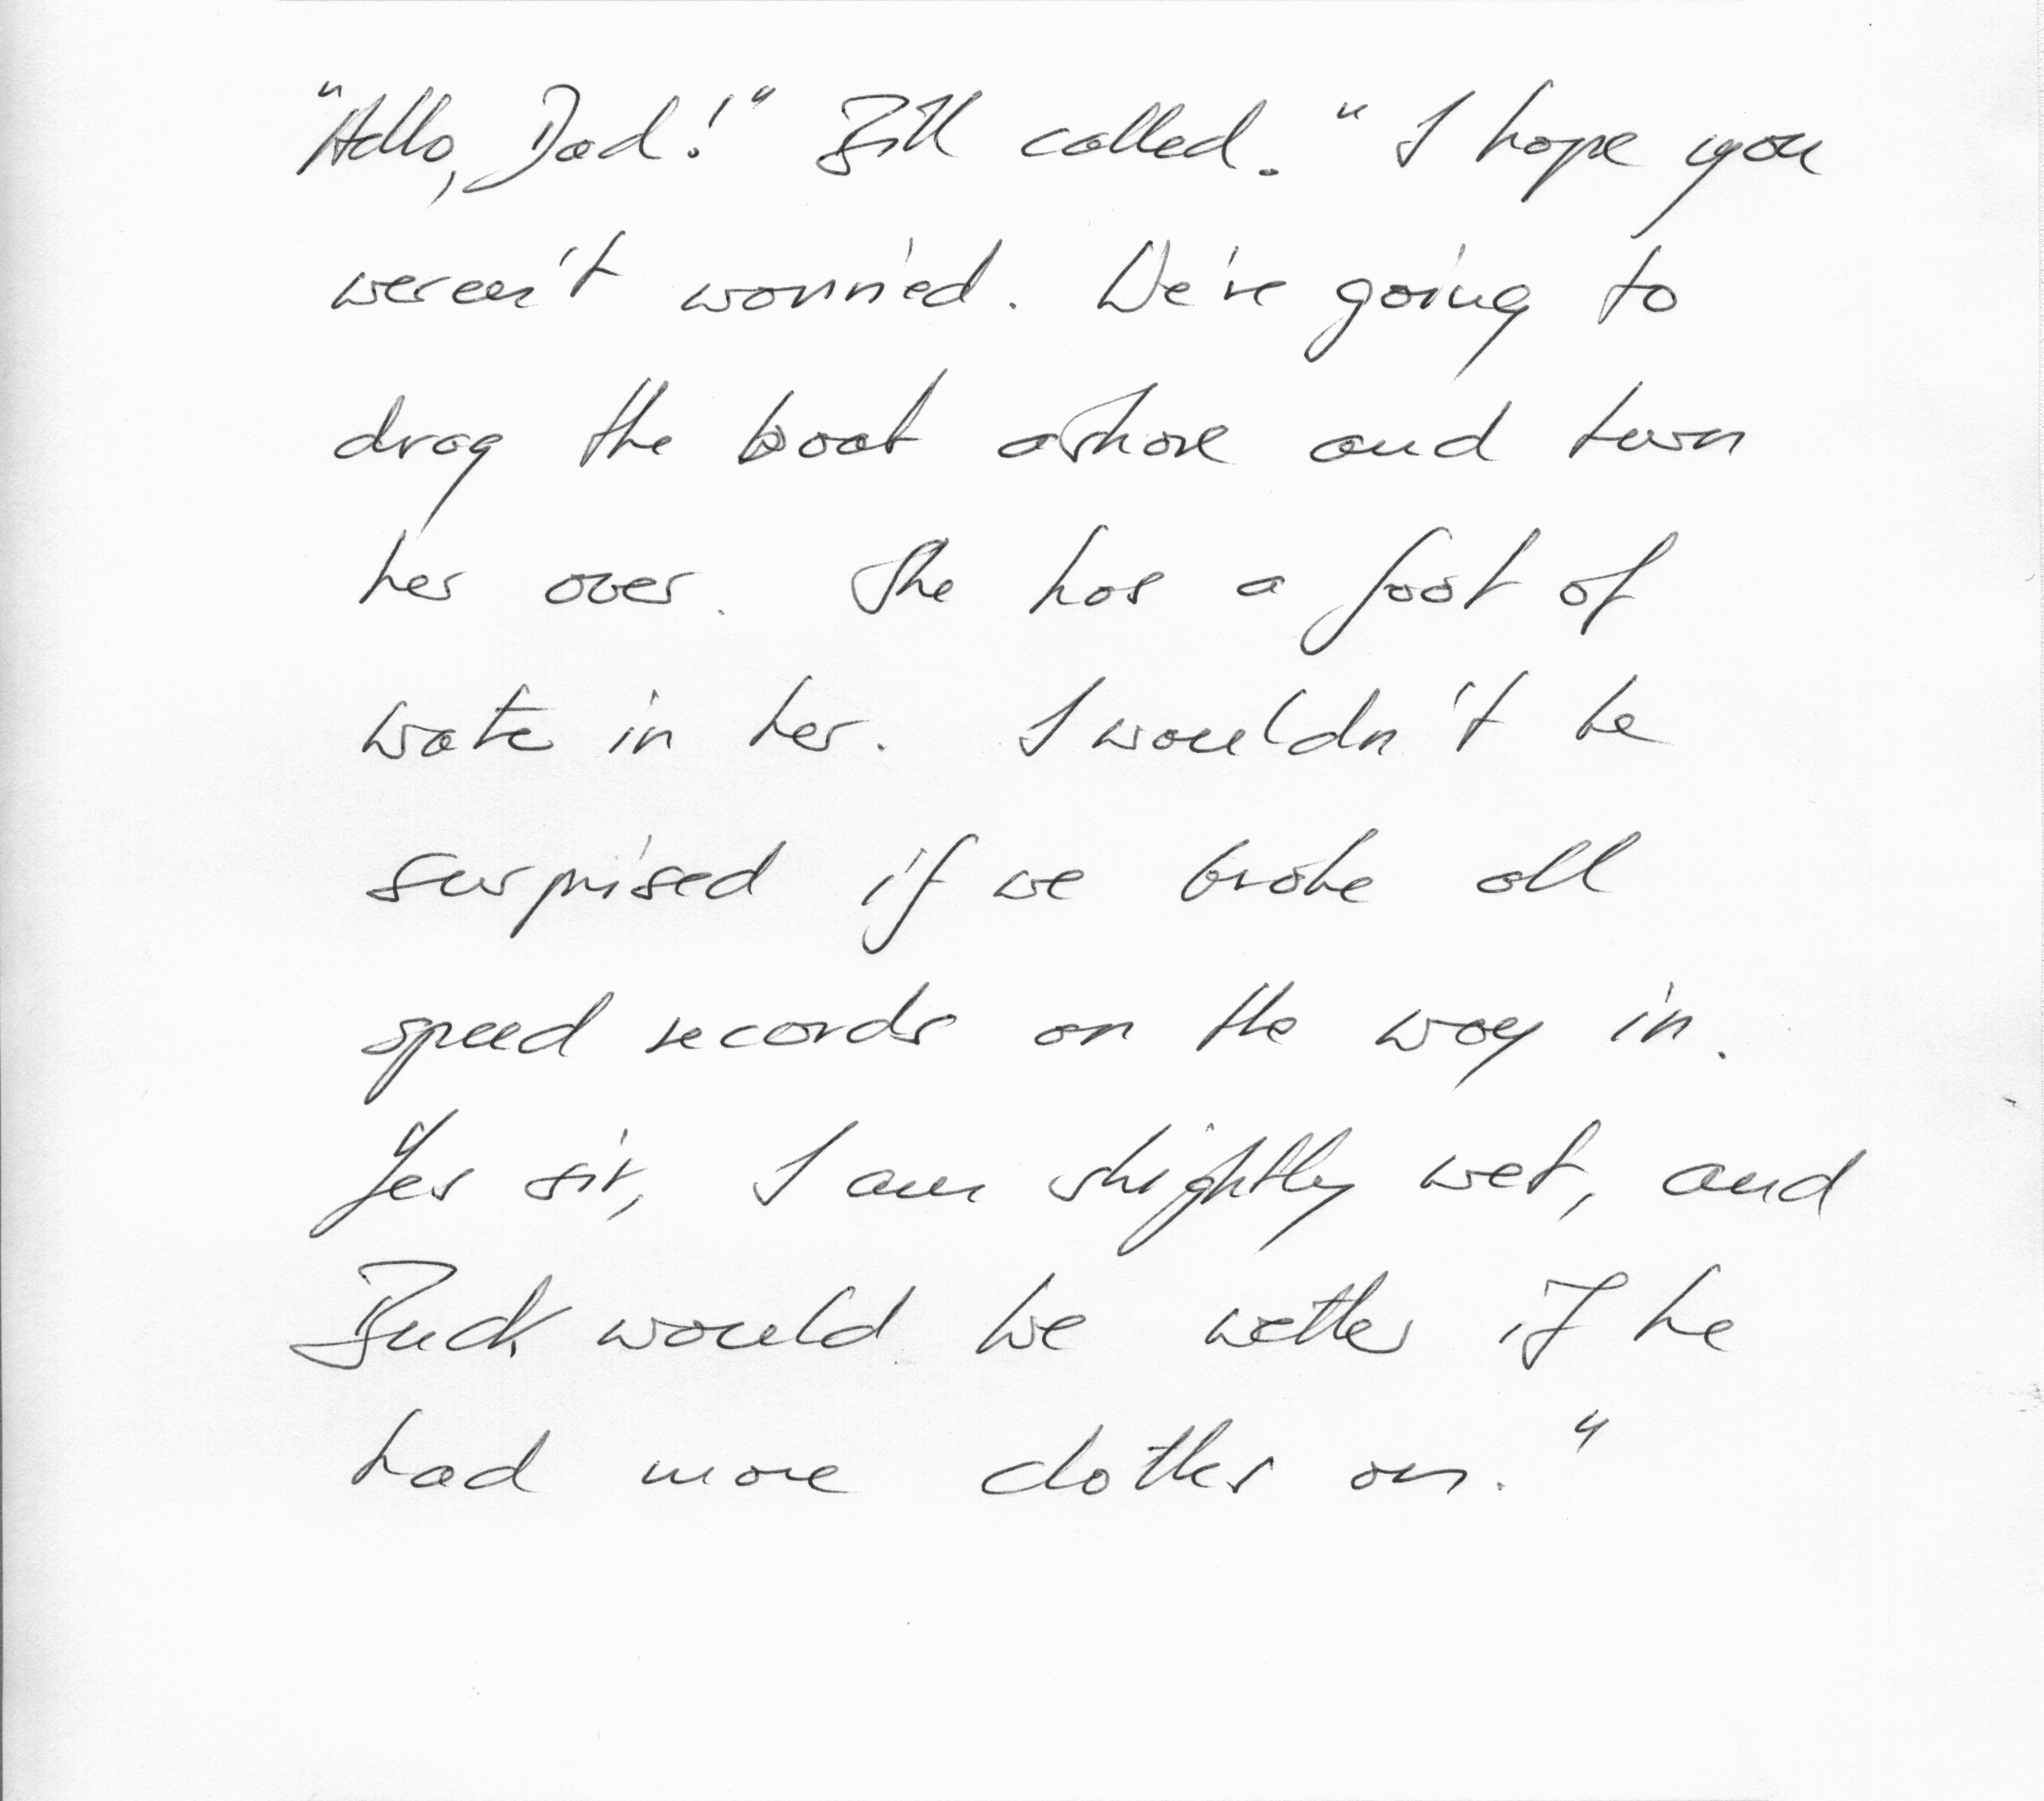 "Hello, Dad!" Bill called. "I hope you
weren't worried. We're going to
drag the boat ashore and turn
her over. She has a foot of
water in her. I wouldn't be
surprised if we broke all
speed records on the way in.
Yes sir, I am slightly wet, and
Buck would be wetter if he
had more clothes on."